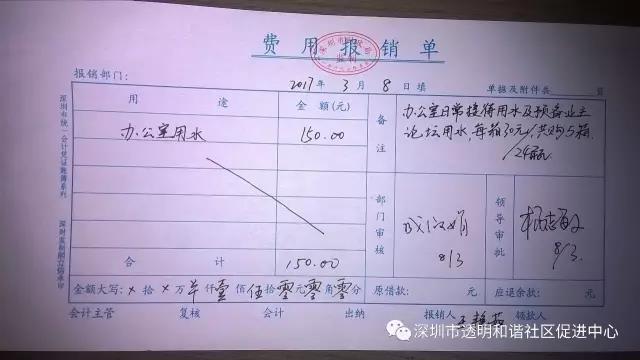 费用报销单
报销部门：
2017年3月8日填
单据及附件共 页
用途
金额(元)
办公室用水
150.00
合计
150.00
备注
办公室日常接待用水及预备业主
论坛用水，每箱30元/，共购5箱
/24瓶
部门审核
8/3
领导审批
8/3.
金额大写：× 拾 × 万 仟 壹 佰 伍 拾 零 元 零 角 零 分
原借款： 元
应退余款： 元
会计主管
复核
会计
出纳
报销人
领款人
深圳市统一会计凭证账簿系列
深圳市透明和谐社区促进中心